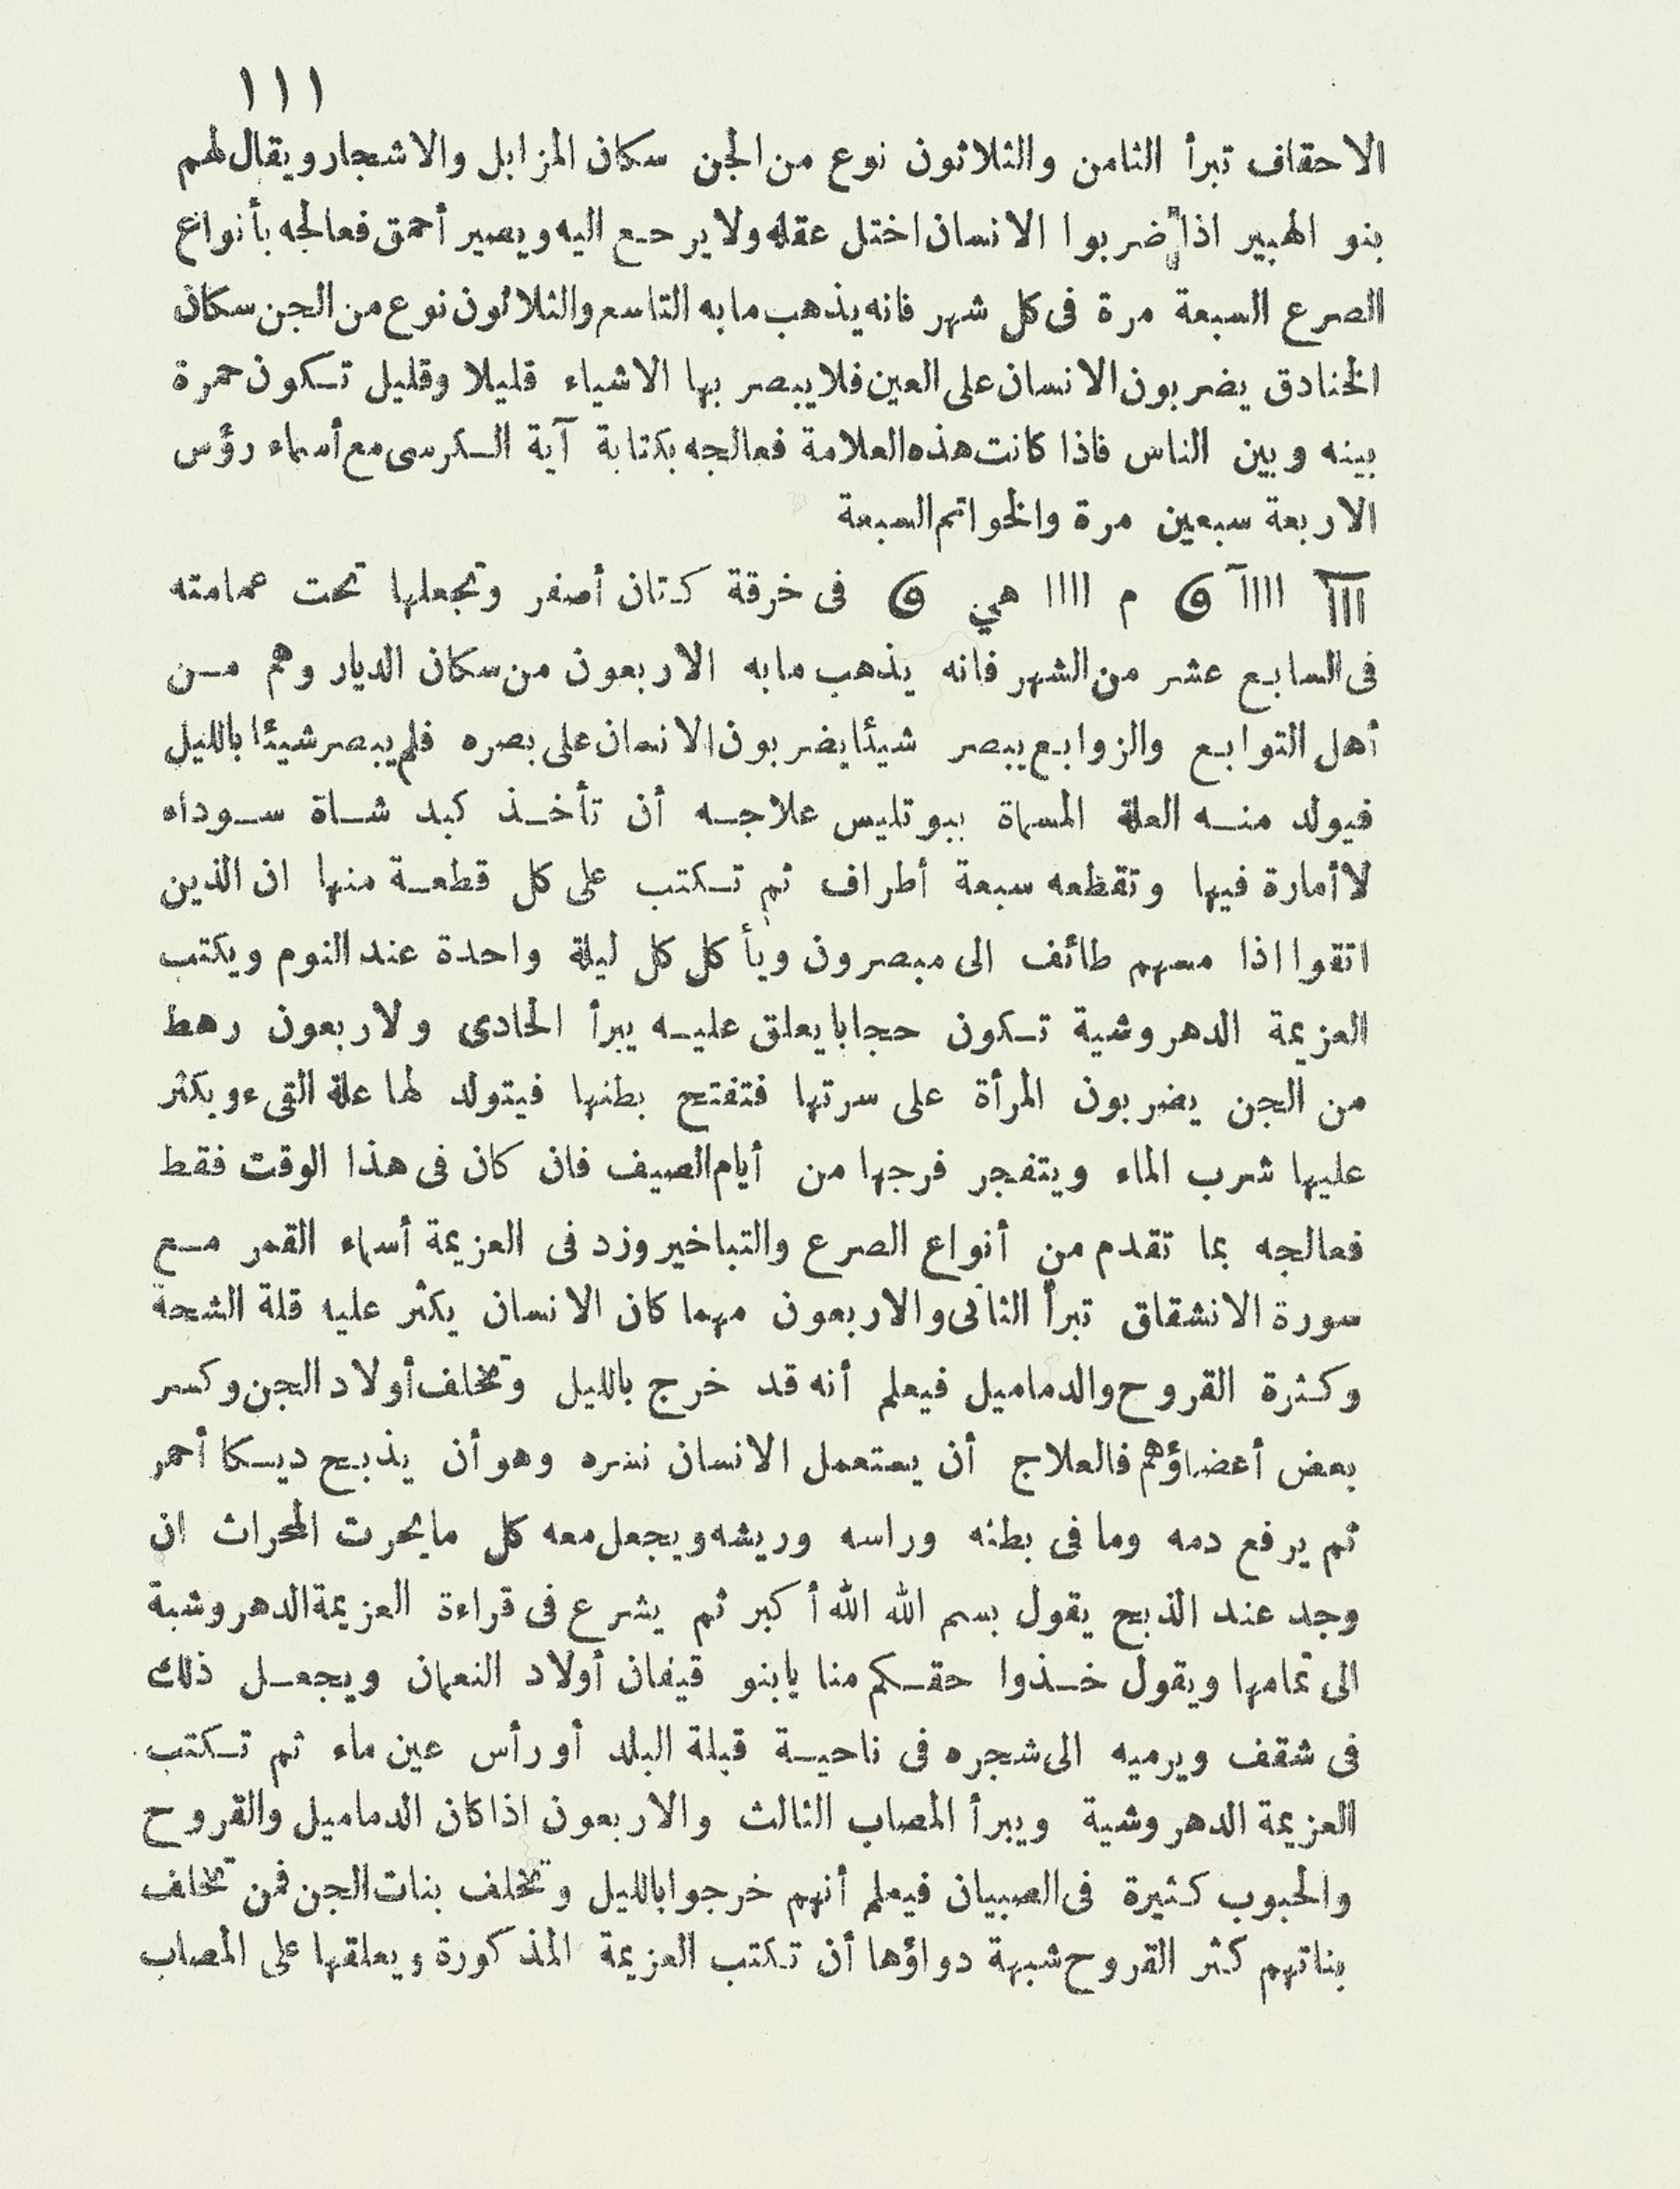 ١١١
الاحقاف تبرأ الثامن والثلاثون نوع من الجن سكان المزابل والاشجار ويقال لهم
بنو الهبير اذا ضربوا الانسان اختل عقله ولا يرجع اليه ويصير أحمق فعالجه بأنواع
الصرع السبعة مرة فى كل شهر فانه يذهب ما به التاسع والثلاثون نوع من الجن سكان
الخنادق يضربون الانسان على العين فلا يبصر بها الاشياء قليلا وقليل تكون حمرة
بينه وبين الناس فاذا كانت هذه العلامة فعالجه بكتابة آية الكرسى مع أسماء رؤس
الاربعة سبعين مرة والخواتم السبعة
م هي فى خرقة كتان أصفر وتجعلها تحت عمامته
فى السابع عشر من الشهر فانه يذهب ما به الاربعون من سكان الديار وهم من
أهل التوابع والزوابع يبصر شيئا يضربون الانسان على بصره فلم يبصر شيئا بالليل
فيولد منه العلة المسماة ببوتليس علاجه أن تأخذ كبد شاة سوداه
لا أمارة فيها وتقطعه سبعة أطراف ثم تكتب على كل قطعة منها ان الذين
اتقوا اذا مسهم طائف الى مبصرون ويأكل كل ليلة واحدة عند النوم ويكتب
العزيمة الدهروشية تكون حجابا يعلق عليه يبرأ الحادى ولاربعون رهط
من الجن يضربون المرأة على سرتها فتفتح بطنها فيتولد لها علة القىء ويكثر
عليها شرب الماء ويتفجر فرجها من أيام الصيف فان كان فى هذا الوقت فقط
فعالجه بما تقدم من أنواع الصرع والتباخير وزد فى العزيمة أسماء القمر مع
سورة الانشقاق تبرأ الثانى والاربعون مهما كان الانسان يكثر عليه قلة الشحة
وكثرة القروح والدماميل فيعلم أنه قد خرج بالليل وتخلف أولاد الجن وكسر
بعض أعضاؤهم فالعلاج أن يستعمل الانسان نشره وهو أن يذبح ديكا أحمر
ثم يرفع دمه وما فى بطنه وراسه وريشه ويجعل معه كل ما يحرت المحراث ان
وجد عند الذبح يقول بسم الله الله أكبر ثم يشرع فى قراءة العزيمة الدهروشية
الى تمامها ويقول خذوا حقكم منا يا بنو قيفان أولاد النعمان ويجعل ذلك
فى شقف ويرميه الى شجره فى ناحية قبلة البلد أو رأس عين ماء ثم تكتب
العزيمة الدهروشية ويبرأ المصاب الثالث والاربعون اذا كان الدماميل والقروح
والحبوب كثيرة فى الصبيان فيعلم أنهم خرجوا بالليل وتخلف بنات الجن فمن تخلف
بناتهم كثر القروح شبهة دواؤها أن تكتب العزيمة المذكورة ويعلقها على المصاب